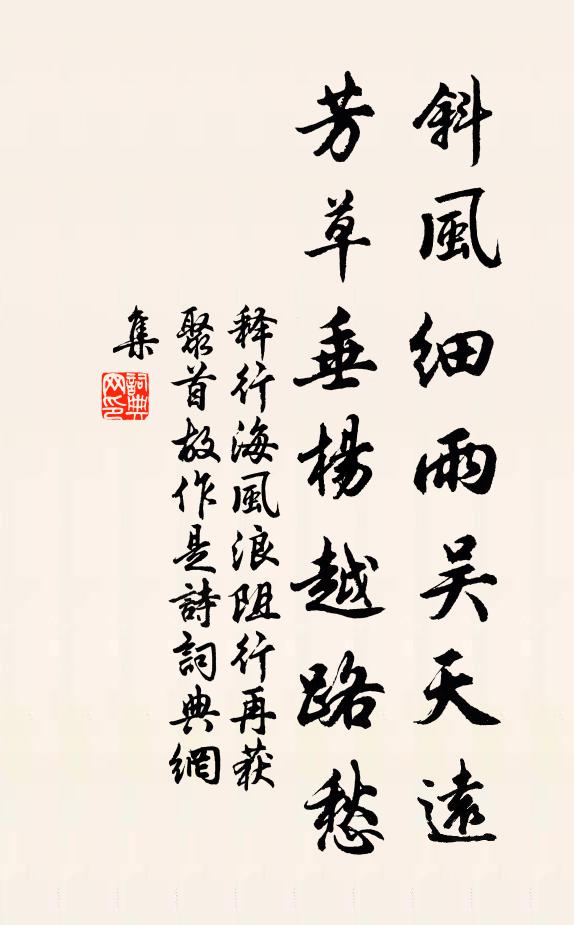 斜風細雨吴天遠
芳草垂楊越路愁
释行海風浪阻行再获
聚首故作是詩詞典網
集
詞典
网印